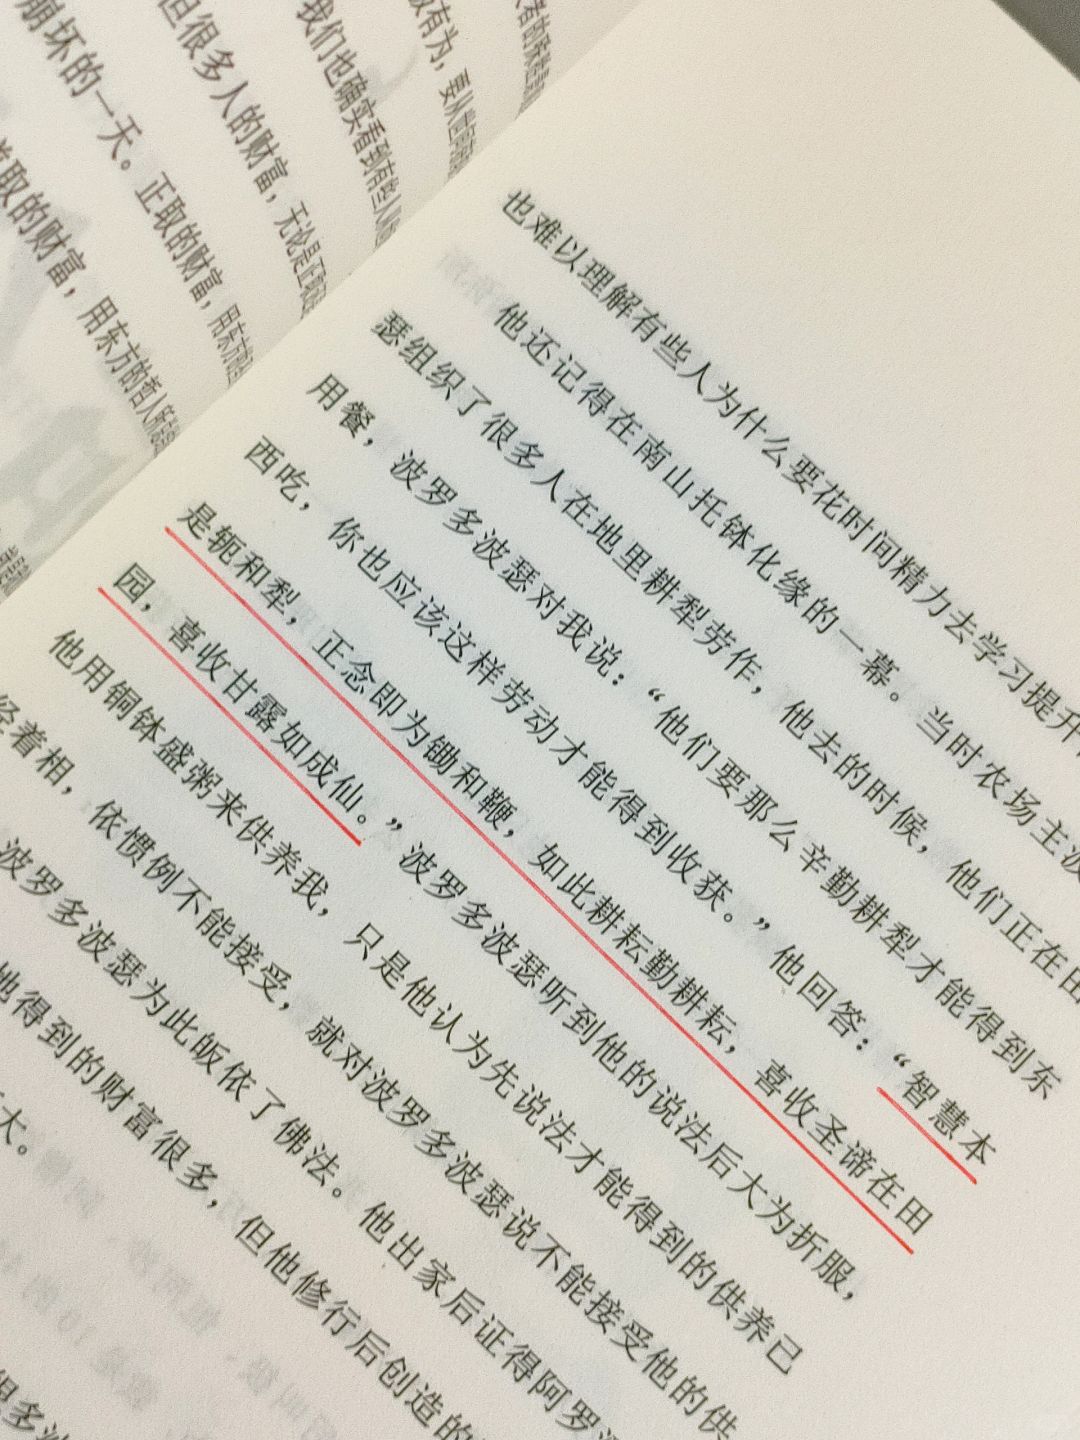 有为，要从
我们也确实看到有些人
但很多人的财富，无论是正取
崩坏的一天。正取的财富，用东方
取的财富，用东方的哲人所
也难以理解有些人为什么要花时间精力去学习提升
他还记得在南山托钵化缘的一幕。当时农场主波
瑟组织了很多人在地里耕犁劳作，他去的时候，他们正在田
用餐，波罗多波瑟对我说：“他们要那么辛勤耕犁才能得到东
西吃，你也应该这样劳动才能得到收获。”他回答：“智慧本
是轭和犁，正念即为锄和鞭，如此耕耘勤耕耘，喜收圣谛在田
园，喜收甘露如成仙。”波罗多波瑟听到他的说法后大为折服，
他用铜钵盛粥来供养我，只是他认为先说法才能得到的供养已
经着相，依惯例不能接受，就对波罗多波瑟说不能接受他的供
波罗多波瑟为此皈依了佛法。他出家后证得阿罗
得到的财富很多，但他修行后创造的
大。
很多波